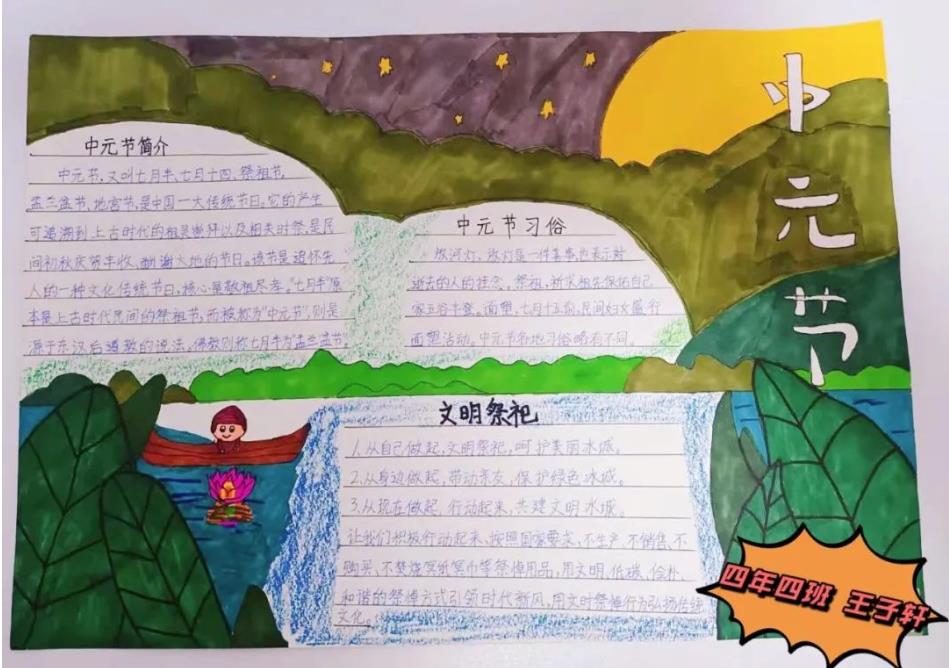 中元节
中元节简介
中元节,又叫七月半、七月十四、祭祖节,
盂兰盆节、地官节,是中国一大传统节日。它的产生
可追溯到上古时代的祖灵崇拜以及相关时祭,是民
间初秋庆贺丰收、酬谢大地的节日。该节是追怀先
人的一种文化传统节日,核心是敬祖尽孝。"七月半"原
本是上古时代民间的祭祖节,而被称为"中元节",则是
源于东汉后道教的说法。佛教则称七月半为"盂兰盆节
中元节习俗
放河灯,放灯是一件善事也表示对
逝去的人的挂念。祭祖,祈求祖先保佑自己
家五谷丰登。面塑,七月十五前,民间妇女盛行
面塑活动。中元节各地习俗略有不同。
文明祭祀
1.从自己做起,文明祭祀,呵护美丽冰城。
2.从身边做起,带动亲友,保护绿色冰城。
3.从现在做起,行动起来,共建文明冰城。
让我们积极行动起来、按照国家要求,不生产、不销售、不
购买、不焚烧冥纸冥币等祭悼用品,用文明、低碳、俭朴、
和谐的祭悼方式引领时代新风,用文明祭悼行为弘扬传统
文化。
四年四班 王子轩